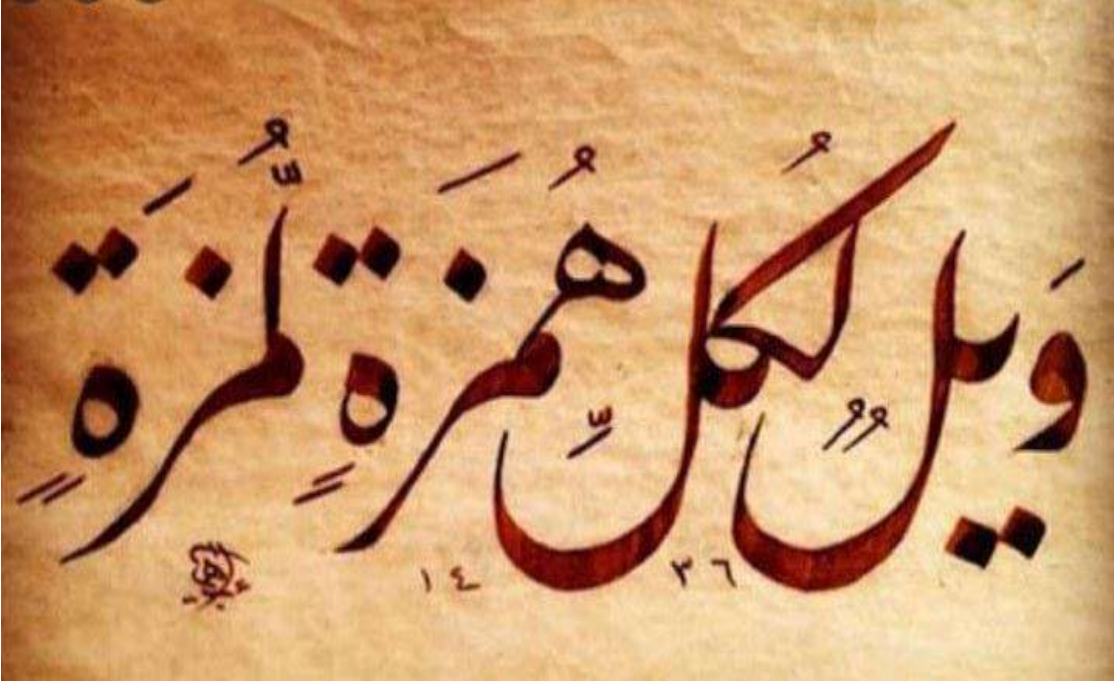 وَيلٌ لكُلِّ هُمزَةٍ لُّمزَةٍ
١٤٣٦